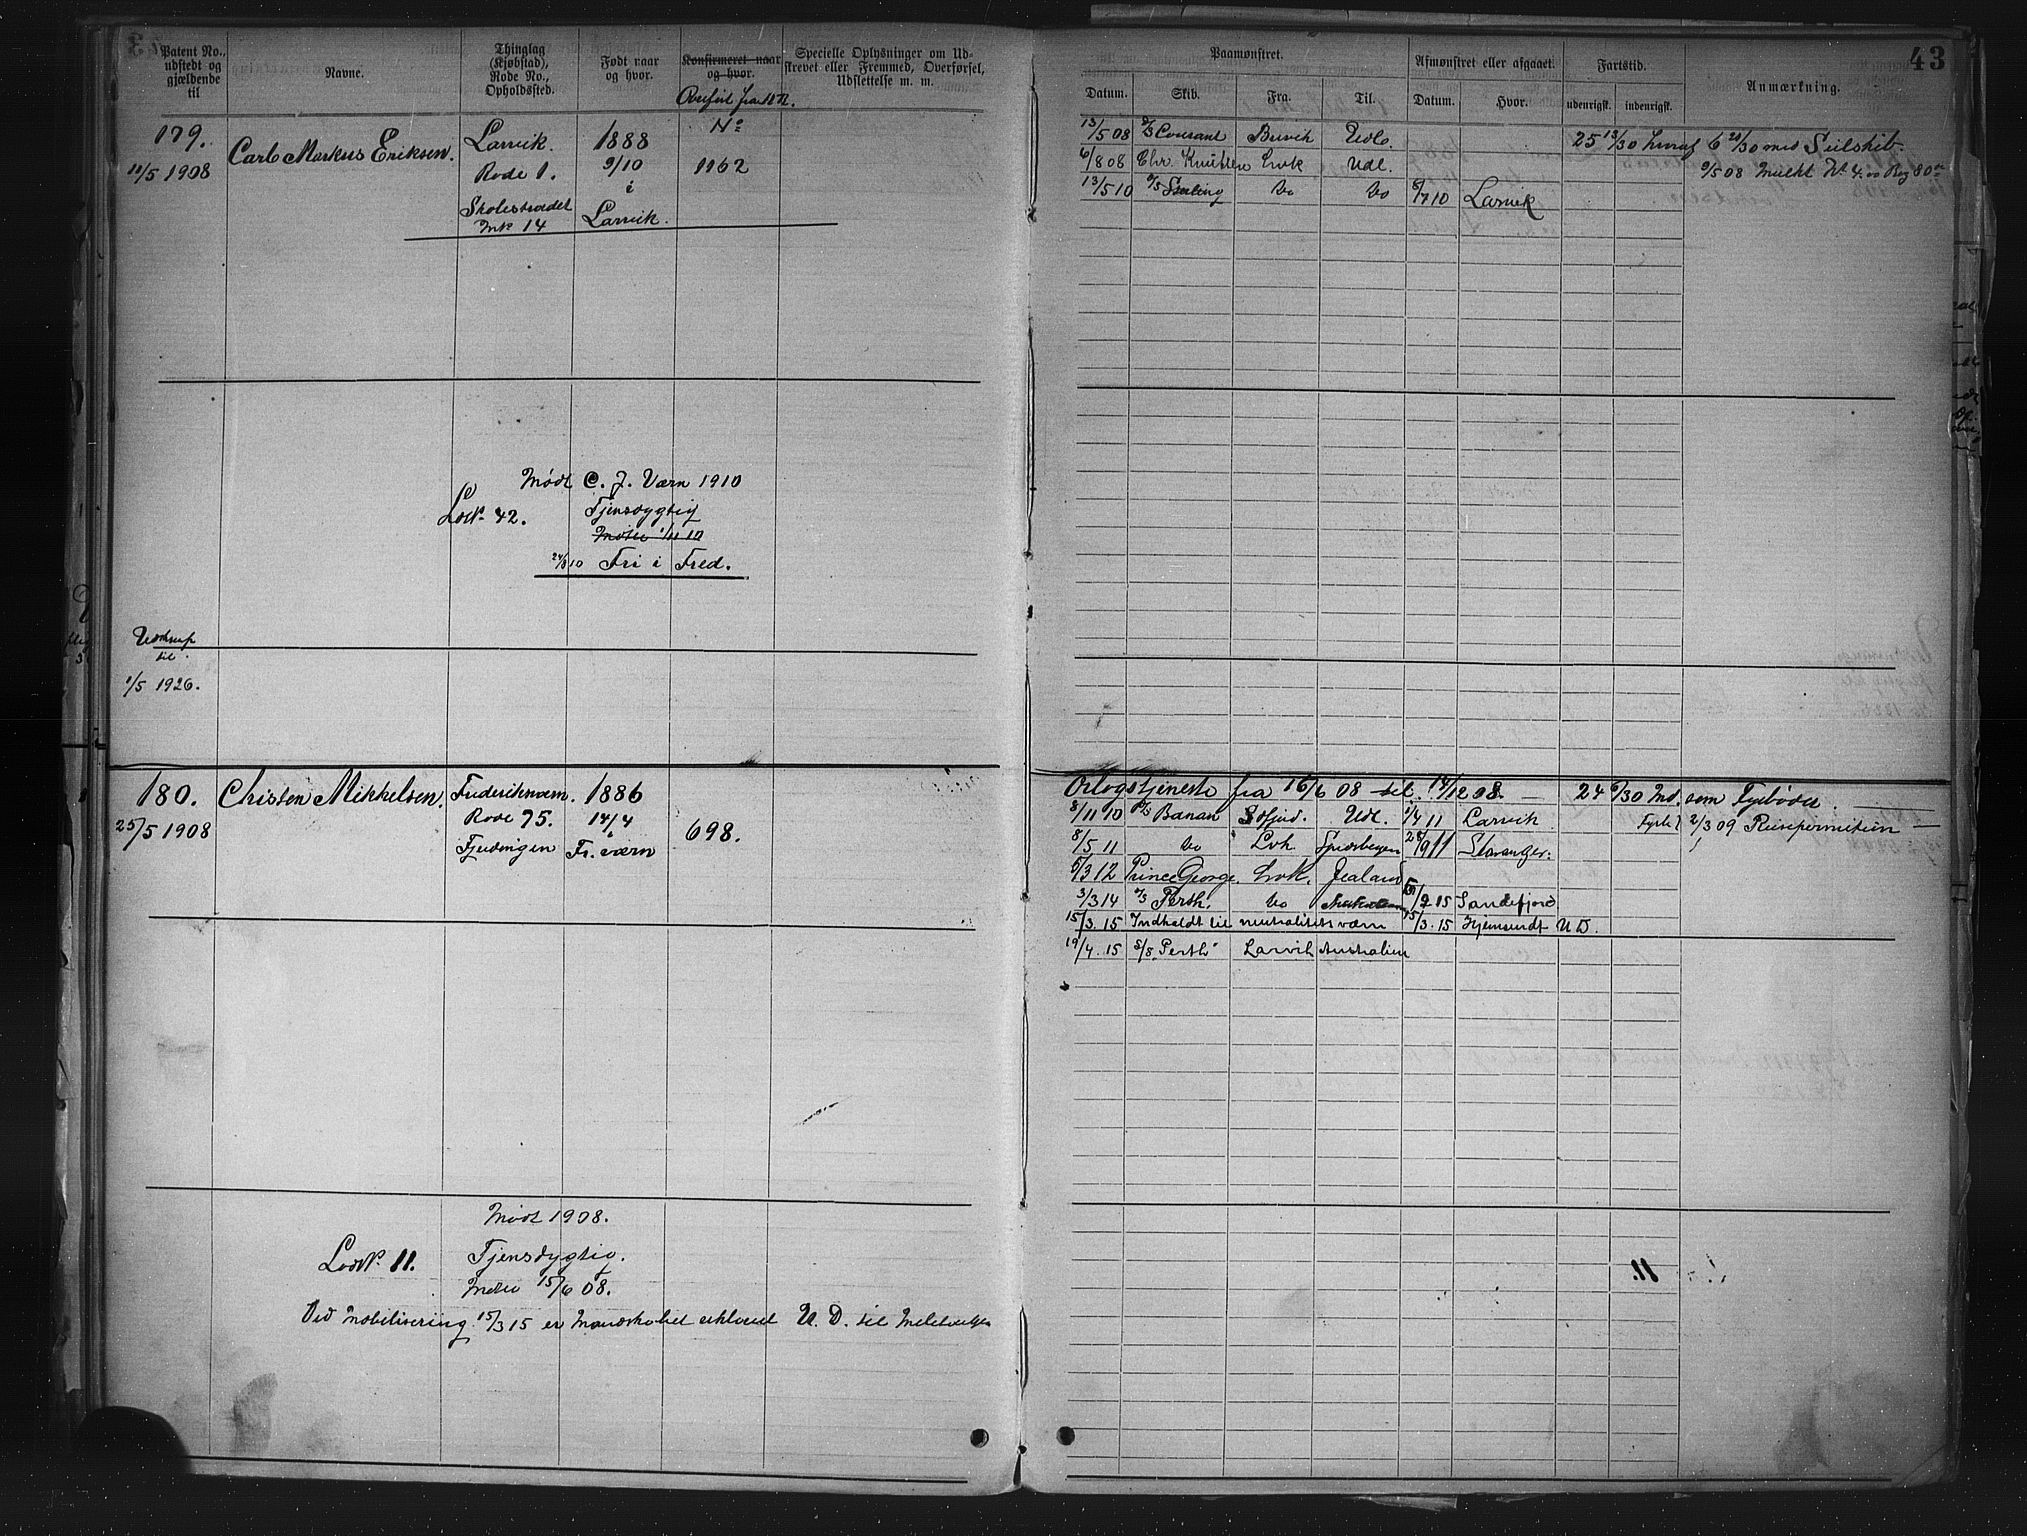 Patent No., udstedt og gjældende til
Navne.
Thinglag (Kjøbstad), Rode No., Opholdssted.
Født naar og hvor.
Konfirmeret naar og hvor.
Overført fra
Specielle Oplysninger om Udskrevet eller Fremmed, Overførsel, Udslettelse m. m.
Paamønstret.
Datum.
Skib.
Fra.
Til.
Afmønstret eller afgaaet.
Datum.
Hvor.
Fartstid.
udenrigsk.
indenrigsk.
Anmærkning.
43
179.
11/5 1908
Carl Markus Eriksen.
Larvik.
Rode 1.
No 14
1888
9/10
i
Larvik.
No
1162
13/5 08 S/S Courant Brevik Udl.
25 13/30 hvoraf 6 21/30 med Seilskib.
6/8 08 Chr. Knudsen Lvk Udl.
9/5 08 Mulkt Kr 4.00
13/5 10 S/S Sterling do do 8/7 10 Larvik
Mødt C. J. Værn 1910
Lod No 42.
Tjensdygtig
Møder 1/11 10
24/8 10 Fri i Fred.
Udskrevet til
1/5 1926.
180.
25/5 1908
Christen Mikkelsen.
Frederiksværn.
Rode 75.
1886
14/4
i
Fr.værn
698.
Orlogstjeneste fra 16/6 08 til 14/12 08.
24 6/30 Ind. som Fyrbøder.
8/11 10 S/S Banan Udl. 1/4 11 Larvik
2/3 09 Reisepermission
8/5 11 do Lvk Spidsbergen 28/9 11 Stavanger.
5/3 12 Prince George. Lvk.
3/3 14 S/S Perth. do /2 15 Sandefjord
15/3. 15 Indkaldt til neutralitetsværn 15/3. 15 Hjemsendt U D.
19/4. 15 S/S "Perth" Larvik Australien
Mødt 1908.
Lod No 11.
Tjensdygtig.
Møder 15/6 08.
Ved Mobilisering 15/3 15 er Mandskabet erklæret U. D. til